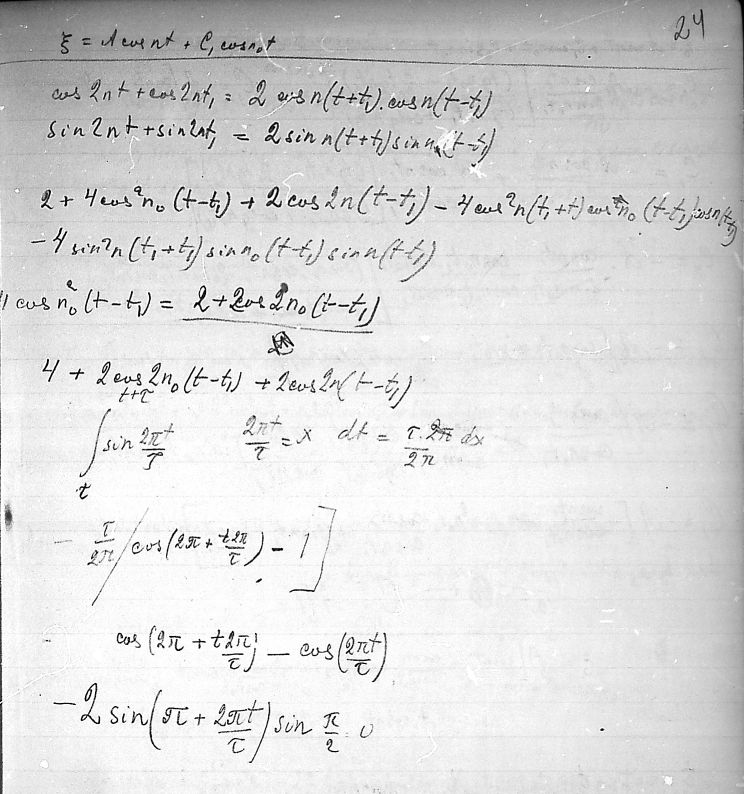 24
ξ = A cos nt + C, cos n₀t
cos 2nt + cos 2nt₁ = 2 cos n(t+t₁).cos n(t-t₁)
sin 2nt + sin 2nt₁ = 2 sin n(t+t₁) sin n(t-t₁)
2 + 4cos²n₀(t-t₁) + 2cos 2n(t-t₁) - 4cos²n(t₁+t) cos n₀(t-t₁) cos n(t-t₁)
-4 sin²n(t₁+t₁) sin n₀(t-t₁) sin n(t-t₁)
4 cos n₀²(t-t₁) = 2+2cos 2n₀(t-t₁)
4 + 2cos 2n₀(t-t₁) + 2cos 2n(t-t₁)
∫ₜᵗ⁺ᵀ sin 2πt/τ 2πt/τ = x dt = τ.2π/2π dx
- τ/2π [cos(2π + t2π/τ) - 1]
cos (2π + t2π/τ) - cos (2πt/τ)
-2 sin(π + 2πt/τ) sin π/2 0